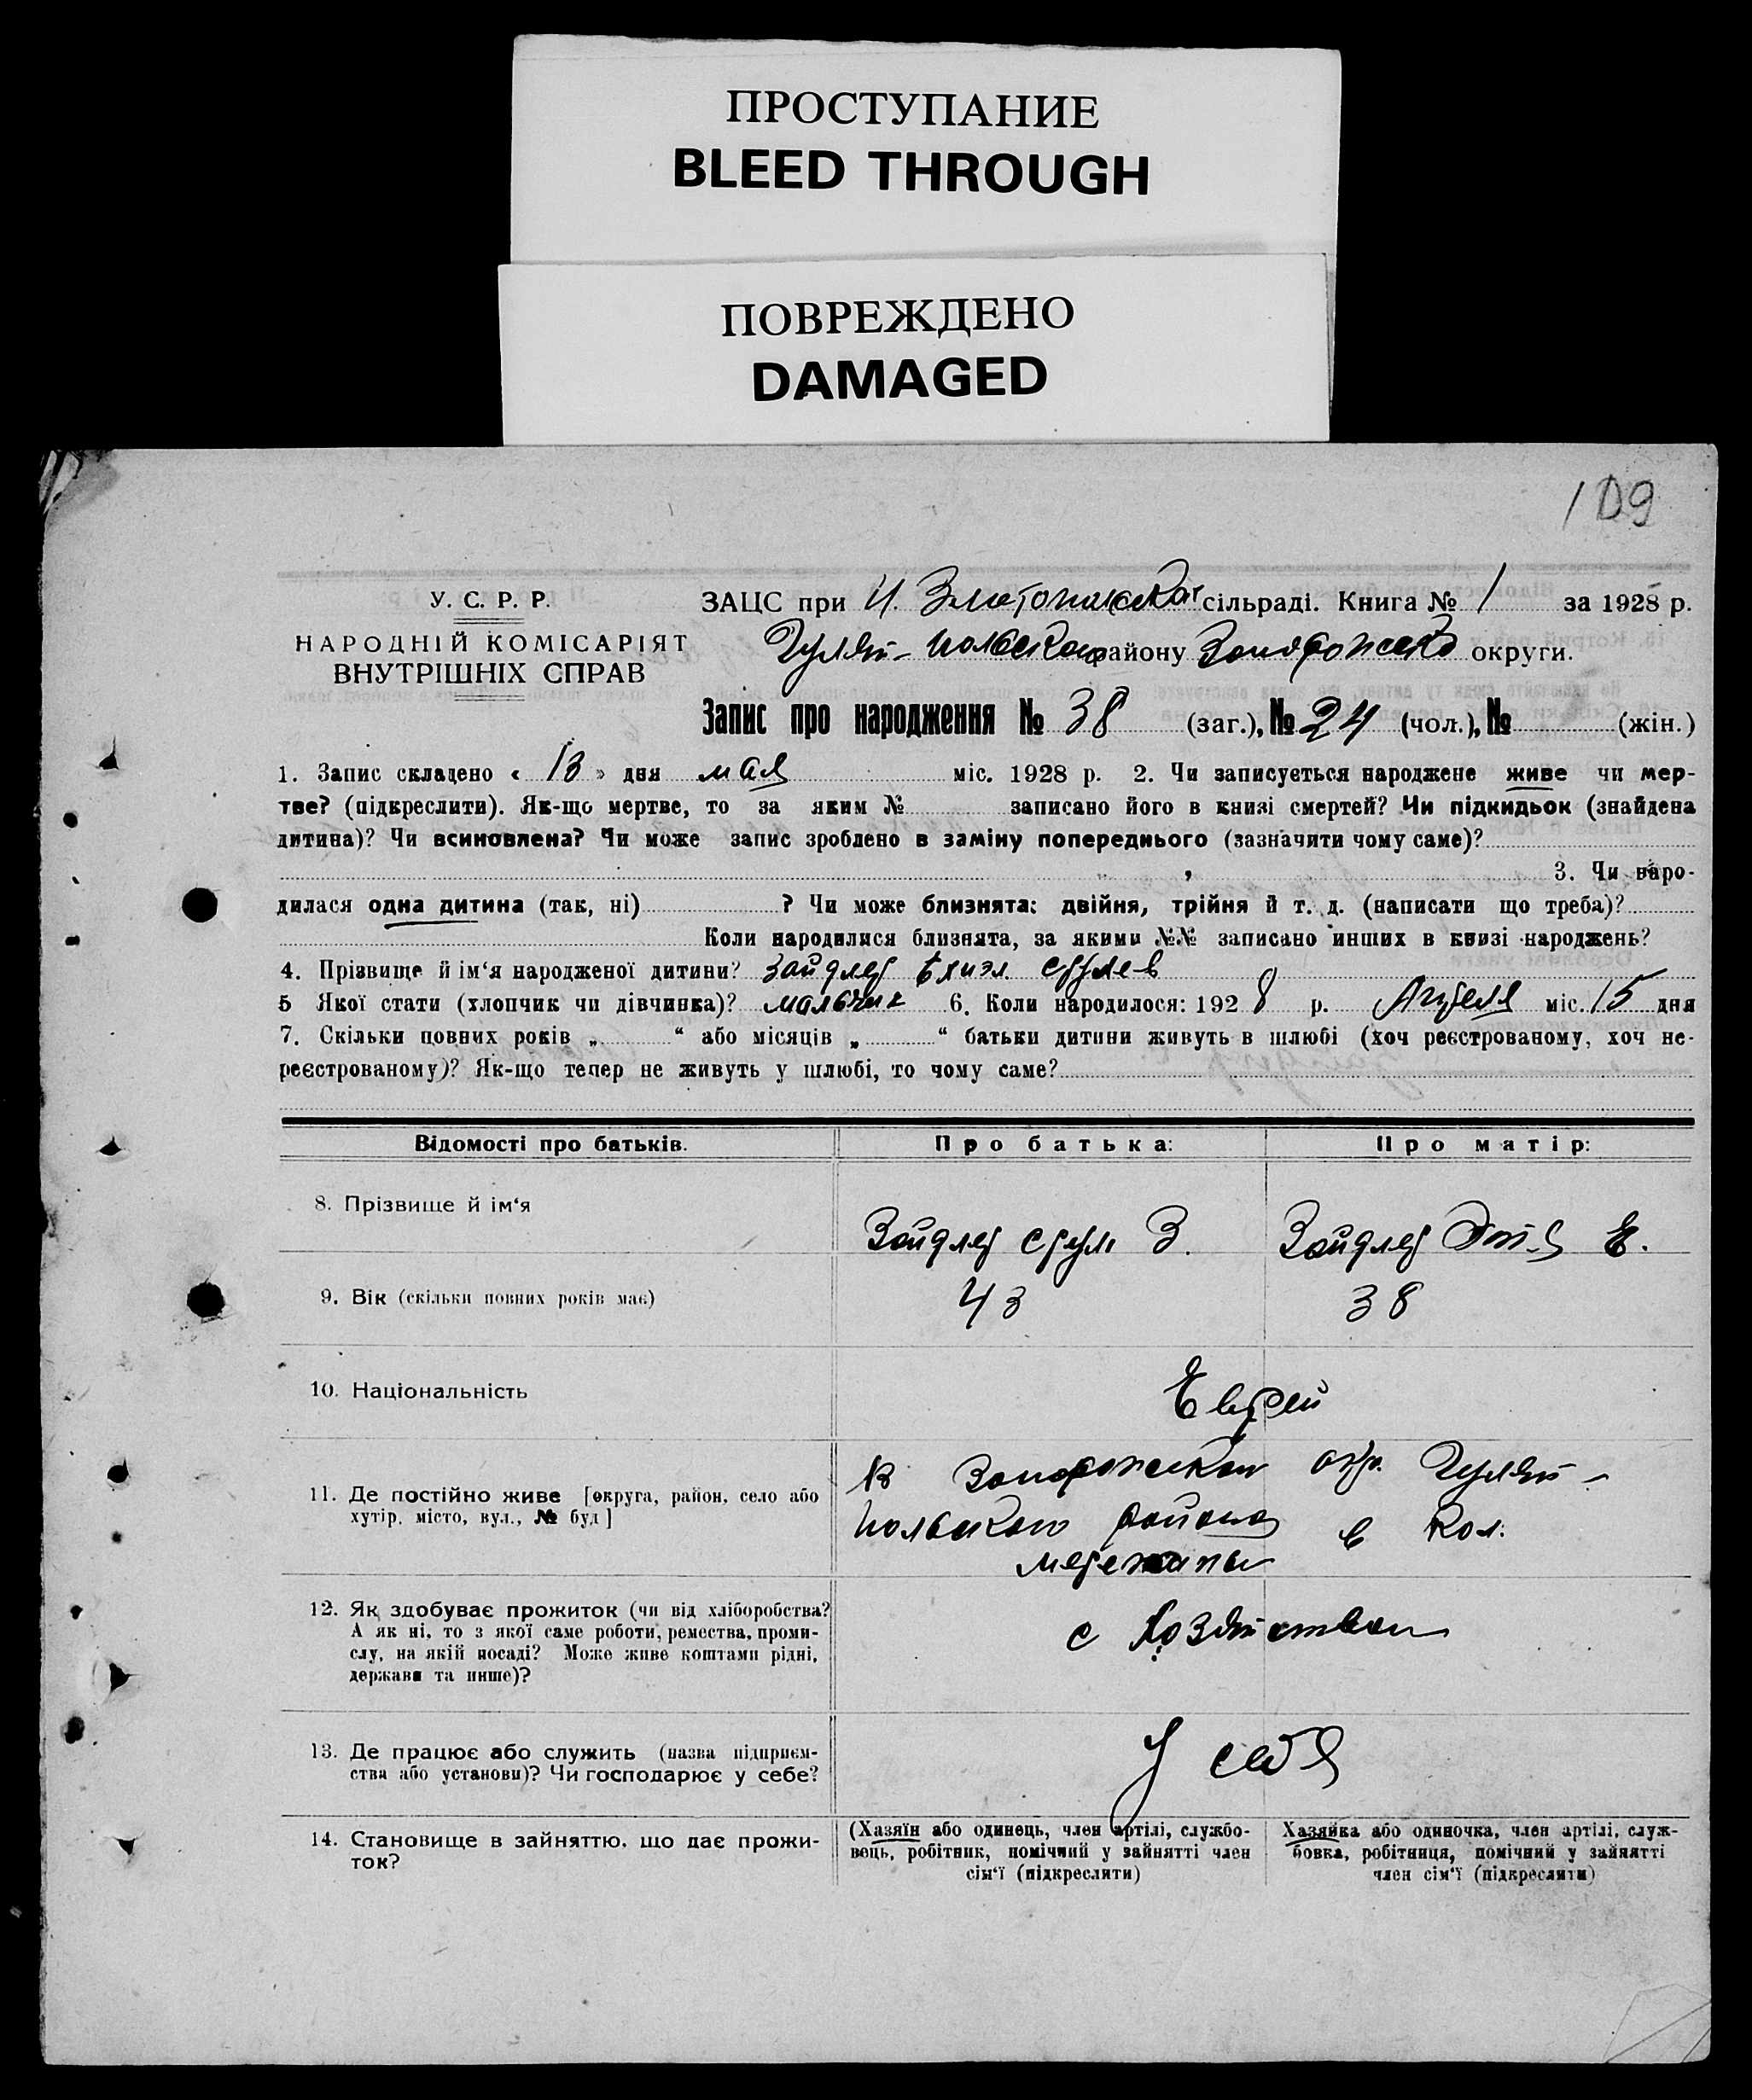 ПРОСТУПАНИЕ
BLEED THROUGH
ПОВРЕЖДЕНО
DAMAGED
109
У. С. Р. Р.
НАРОДНІЙ КОМІСАРІЯТ
ВНУТРІШНІХ СПРАВ
ЗАЦС при И. Златопольской сільраді. Книга № 1 за 1928 р.
Гуляй-польского району Запорожской округи.
Запис про народження № 38 (заг.), № 24 (чол.), № (жін.)
1. Запис складено « 13 » дня мая міс. 1928 р. 2. Чи записується народжене живе чи мер-
тве? (підкреслити). Як-що мертве, то за яким № записано його в книзі смертей? Чи підкидьок (знайдена
дитина)? Чи всиновлена? Чи може запис зроблено в заміну попереднього (зазначити чому саме)?
3. Чи наро-
дилася одна дитина (так, ні) ? Чи може близнята: двійня, трійня й т. д. (написати що треба)?
Коли народилися близнята, за якими №№ записано инших в книзі народжень?
4. Прізвище й ім‘я народженої дитини? Зайдлер Ехиэл Срулев
5 Якої стати (хлопчик чи дівчинка)? мальчик 6. Коли народилося: 192 8 р. Апреля міс. 15 дня
7. Скільки повних років „ “ або місяців „ “ батьки дитини живуть в шлюбі (хоч реєстрованому, хоч не-
реєстрованому)? Як-що тепер не живуть у шлюбі, то чому саме?
Відомості про батьків. Про батька: Про матір:
8. Прізвище й ім‘я
Зайдлер Срул З. Зайдлер Этя Е.
9. Вік (скільки повних років має) 43 38
10. Національність Еврей
11. Де постійно живе [округа, район, село або
хутір, місто, вул., № буд]
В Запорожской окр. Гуляй-
польского района в кол.
Межеричи
12. Як здобуває прожиток (чи від хліборобства?
А як ні, то з якої саме роботи, ремества, проми-
слу, на якій посаді? Може живе коштами рідні,
держави та инше)?
с хозяйством
13. Де працює або служить (назва підприєм-
ства або установи)? Чи господарює у себе?
У себя
14. Становище в зайняттю, що дає прожи-
ток?
(Хазяїн або одинець, член артілі, службо-
вець, робітник, помічний у зайнятті член
сім‘ї (підкреслити)
Хазяйка або одиночка, член артілі, служ-
бовка, робітниця, помічний у зайнятті
член сім‘ї (підкреслити)